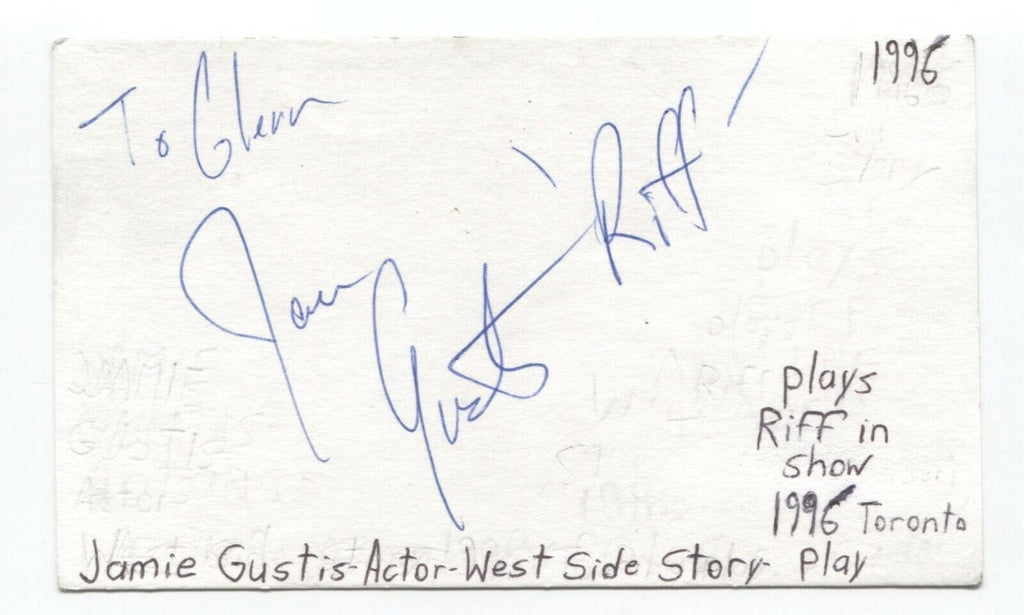 1996
To Glenn
"Riff"
Jamie Gustis
plays
Riff in
show
1996 Toronto
Jamie Gustis-Actor-West Side Story- Play
JAMIE
GUSTIS